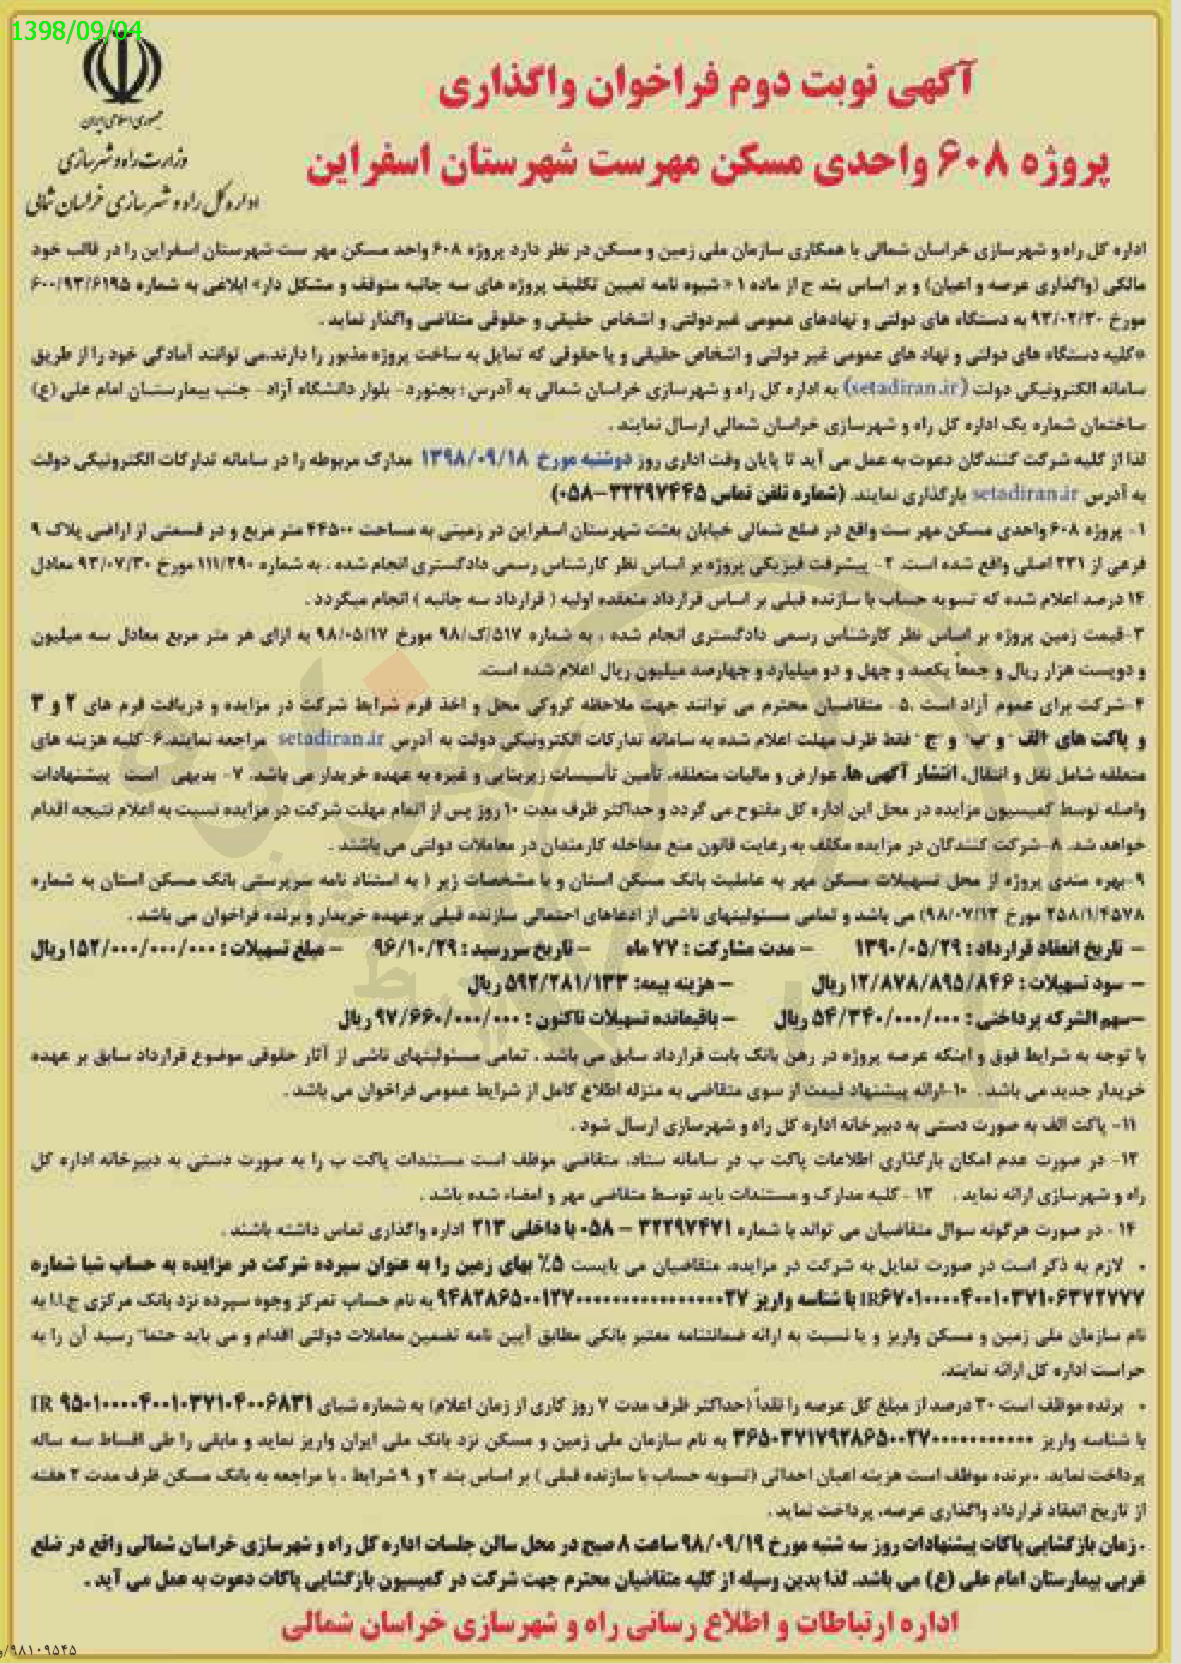 1398/09/04
جمهوری اسلامی ایران
وزارت راه و شهرسازی
اداره کل راه و شهرسازی خراسان شمالی
آگهی نوبت دوم فراخوان واگذاری
پروژه ۶۰۸ واحدی مسکن مهرست شهرستان اسفراین
اداره کل راه و شهرسازی خراسان شمالی با همکاری سازمان ملی زمین و مسکن در نظر دارد پروژه ۶۰۸ واحد مسکن مهر ست شهرستان اسفراین را در قالب خود
مالکی (واگذاری عرصه و اعیان) و بر اساس بند ج از ماده ۱ «شیوه نامه تعیین تکلیف پروژه های سه جانبه متوقف و مشکل دار» ابلاغی به شماره ۶۰۰/۹۳/۶۱۹۵
مورخ ۹۳/۰۲/۳۰ به دستگاه های دولتی و نهادهای عمومی غیردولتی و اشخاص حقیقی و حقوقی متقاضی واگذار نماید .
*کلیه دستگاه های دولتی و نهاد های عمومی غیر دولتی و اشخاص حقیقی و یا حقوقی که تمایل به ساخت پروژه مذبور را دارند،می توانند آمادگی خود را از طریق
سامانه الکترونیکی دولت (setadiran.ir) به اداره کل راه و شهرسازی خراسان شمالی به آدرس : بجنورد- بلوار دانشگاه آزاد- جنب بیمارستان امام علی (ع)
ساختمان شماره یک اداره کل راه و شهرسازی خراسان شمالی ارسال نمایند .
لذا از کلیه شرکت کنندگان دعوت به عمل می آید تا پایان وقت اداری روز دوشنبه مورخ ۱۳۹۸/۰۹/۱۸ مدارک مربوطه را در سامانه تدارکات الکترونیکی دولت
به آدرس setadiran.ir بارگذاری نمایند. (شماره تلفن تماس ۳۲۲۹۷۴۴۵-۰۵۸)
۱- پروژه ۶۰۸ واحدی مسکن مهر ست واقع در ضلع شمالی خیابان بعثت شهرستان اسفراین در زمینی به مساحت ۴۴۵۰۰ متر مربع و در قسمتی از اراضی پلاک ۹
فرعی از ۲۳۱ اصلی واقع شده است. ۲- پیشرفت فیزیکی پروژه بر اساس نظر کارشناس رسمی دادگستری انجام شده ، به شماره ۱۱۱/۲۹۰ مورخ ۹۳/۰۷/۳۰ معادل
۱۴ درصد اعلام شده که تسویه حساب با سازنده قبلی بر اساس قرارداد منعقده اولیه ( قرارداد سه جانبه ) انجام میگردد .
۳-قیمت زمین پروژه بر اساس نظر کارشناس رسمی دادگستری انجام شده ، به شماره ۵۱۷/ک/۹۸ مورخ ۹۸/۰۵/۱۷ به ازای هر متر مربع معادل سه میلیون
و دویست هزار ریال و جمعاً یکصد و چهل و دو میلیارد و چهارصد میلیون ریال اعلام شده است.
۴-شرکت برای عموم آزاد است .۵- متقاضیان محترم می توانند جهت ملاحظه کروکی محل و اخذ فرم شرایط شرکت در مزایده و دریافت فرم های ۲ و ۳
و پاکت های "الف" و "ب" و "ج" فقط ظرف مهلت اعلام شده به سامانه تدارکات الکترونیکی دولت به آدرس setadiran.ir مراجعه نمایند.۶-کلیه هزینه های
متعلقه شامل نقل و انتقال، انتشار آگهی ها، عوارض و مالیات متعلقه، تأمین تأسیسات زیربنایی و غیره به عهده خریدار می باشد. ۷- بدیهی است پیشنهادات
واصله توسط کمیسیون مزایده در محل این اداره کل مفتوح می گردد و حداکثر ظرف مدت ۱۰ روز پس از اتمام مهلت شرکت در مزایده نسبت به اعلام نتیجه اقدام
خواهد شد. ۸-شرکت کنندگان در مزایده مکلف به رعایت قانون منع مداخله کارمندان در معاملات دولتی می باشند .
۹-بهره مندی پروژه از محل تسهیلات مسکن مهر به عاملیت بانک مسکن استان و با مشخصات زیر ( به استناد نامه سرپرستی بانک مسکن استان به شماره
۲۵۸/۱/۴۵۷۸ مورخ ۹۸/۰۷/۱۳) می باشد و تمامی مسئولیتهای ناشی از ادعاهای احتمالی سازنده قبلی برعهده خریدار و برنده فراخوان می باشد .
- تاریخ انعقاد قرارداد : ۱۳۹۰/۰۵/۲۹ - مدت مشارکت : ۷۷ ماه - تاریخ سررسید : ۹۶/۱۰/۲۹ - مبلغ تسهیلات : ۱۵۲/۰۰۰/۰۰۰/۰۰۰ ریال
- سود تسهیلات : ۱۲/۸۷۸/۸۹۵/۸۴۶ ریال - هزینه بیمه: ۵۹۲/۲۸۱/۱۳۳ ریال
-سهم الشرکه پرداختی : ۵۴/۳۴۰/۰۰۰/۰۰۰ ریال - باقیمانده تسهیلات تاکنون : ۹۷/۶۶۰/۰۰۰/۰۰۰ ریال
با توجه به شرایط فوق و اینکه عرصه پروژه در رهن بانک بابت قرارداد سابق می باشد ، تمامی مسئولیتهای ناشی از آثار حقوقی موضوع قرارداد سابق بر عهده
خریدار جدید می باشد . ۱۰-ارائه پیشنهاد قیمت از سوی متقاضی به منزله اطلاع کامل از شرایط عمومی فراخوان می باشد .
۱۱- پاکت الف به صورت دستی به دبیرخانه اداره کل راه و شهرسازی ارسال شود .
۱۲- در صورت عدم امکان بارگذاری اطلاعات پاکت ب در سامانه ستاد، متقاضی موظف است مستندات پاکت ب را به صورت دستی به دبیرخانه اداره کل
راه و شهرسازی ارائه نماید . ۱۳ - کلیه مدارک و مستندات باید توسط متقاضی مهر و امضاء شده باشد .
۱۴ - در صورت هرگونه سوال متقاضیان می تواند با شماره ۳۲۲۹۷۴۷۱ - ۰۵۸ با داخلی ۲۱۳ اداره واگذاری تماس داشته باشند .
• لازم به ذکر است در صورت تمایل به شرکت در مزایده، متقاضیان می بایست ۵٪ بهای زمین را به عنوان سپرده شرکت در مزایده به حساب شبا شماره
به نام حساب تمرکز وجوه سپرده نزد بانک مرکزی ج.ا.ا به
نام سازمان ملی زمین و مسکن واریز و یا نسبت به ارائه ضمانتنامه معتبر بانکی مطابق آیین نامه تضمین معاملات دولتی اقدام و می باید حتما" رسید آن را به
حراست اداره کل ارائه نمایند.
• برنده موظف است ۳۰ درصد از مبلغ کل عرصه را نقداً (حداکثر ظرف مدت ۷ روز کاری از زمان اعلام) به شماره شبای
با شناسه واریز به نام سازمان ملی زمین و مسکن نزد بانک ملی ایران واریز نماید و مابقی را طی اقساط سه ساله
پرداخت نماید. •برنده موظف است هزینه اعیان احداثی (تسویه حساب با سازنده قبلی ) بر اساس بند ۲ و ۹ شرایط ، با مراجعه به بانک مسکن ظرف مدت ۲ هفته
از تاریخ انعقاد قرارداد واگذاری عرصه، پرداخت نماید .
• زمان بازگشایی پاکات پیشنهادات روز سه شنبه مورخ ۹۸/۰۹/۱۹ ساعت ۸ صبح در محل سالن جلسات اداره کل راه و شهرسازی خراسان شمالی واقع در ضلع
غربی بیمارستان امام علی (ع) می باشد. لذا بدین وسیله از کلیه متقاضیان محترم جهت شرکت در کمیسیون بازگشایی پاکات دعوت به عمل می آید .
اداره ارتباطات و اطلاع رسانی راه و شهرسازی خراسان شمالی
۹۸۱۰۹۵۴۵/و